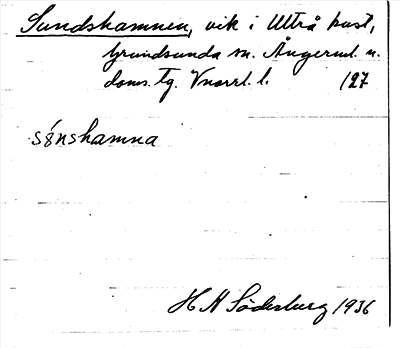 Sundshamnen, vik i Ultrå kust,
Grundsunda sn. Ångerml. n.
doms. tg. Vnorrl. l. 127
sø´nshamna
H H Söderburg 1936